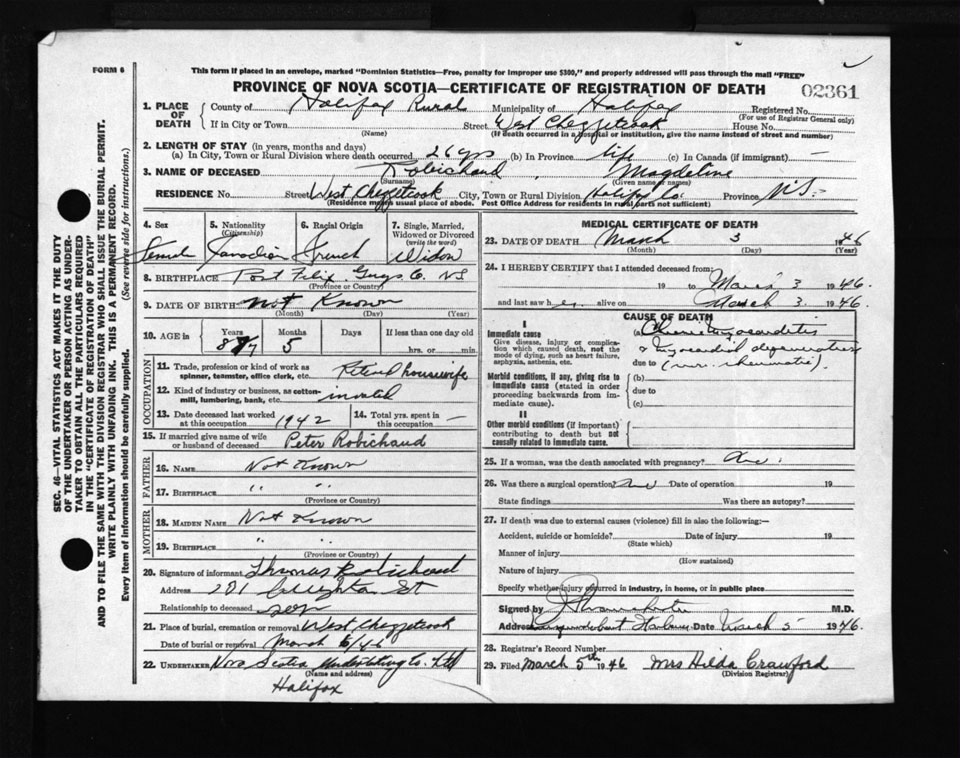 FORM 6
This form if placed in an envelope, marked "Dominion Statistics—Free, penalty for improper use $300," and properly addressed will pass through the mail "FREE"
PROVINCE OF NOVA SCOTIA—CERTIFICATE OF REGISTRATION OF DEATH
02361
1. PLACE OF DEATH { County of Halifax Rural Municipality of Halifax Registered No.
(For use of Registrar General only)
If in City or Town Street West Chezzetcook House No.
(Name) (If death occurred in a hospital or institution, give the name instead of street and number)
2. LENGTH OF STAY (in years, months and days)
(a) In City, Town or Rural Division where death occurred 26 yrs (b) In Province life (c) In Canada (if immigrant) —
3. NAME OF DECEASED Robichaud, Magdeline
(Surname) (Given name or names)
RESIDENCE No. Street West Chezzetcook City, Town or Rural Division Halifax Co. Province N.S.
(Residence means usual place of abode. Post Office Address for residents in rural parts not sufficient)
4. Sex 5. Nationality 6. Racial Origin 7. Single, Married, Widowed or Divorced
(Citizenship) (write the word)
Female Canadian French Widow
8. BIRTHPLACE Port Felix Guys Co. NS
(Province or Country)
9. DATE OF BIRTH Not Known
(Month) (Day) (Year)
10. AGE in Years Months Days If less than one day old
5 hrs. or min.
OCCUPATION
11. Trade, profession or kind of work as spinner, teamster, office clerk, etc. Retired housewife
12. Kind of industry or business, as cotton-mill, lumbering, bank, etc.
13. Date deceased last worked at this occupation 1942 14. Total yrs. spent in this occupation —
15. If married give name of wife or husband of deceased Peter Robichaud
FATHER
16. NAME Not Known
17. BIRTHPLACE " "
(Province or Country)
MOTHER
18. MAIDEN NAME Not Known
19. BIRTHPLACE " "
(Province or Country)
20. Signature of informant Thomas Robichaud
Address 201 Creighton St
Relationship to deceased son
21. Place of burial, cremation or removal West Chezzetcook
Date of burial or removal March 6/46
22. UNDERTAKER Nova Scotia Undertaking Co. Ltd
(Name and address)
Halifax
MEDICAL CERTIFICATE OF DEATH
23. DATE OF DEATH March 3 1946
(Month) (Day) (Year)
24. I HEREBY CERTIFY that I attended deceased from:
19 to March 3 1946.
and last saw her alive on March 3. 1946.
CAUSE OF DEATH
I
Immediate cause
Give disease, injury or complication which caused death, not the mode of dying, such as heart failure, asphyxia, asthenia, etc.
(a) Myocarditis
Myocardial degeneration
due to (non. rheumatic).
Morbid conditions, if any, giving rise to immediate cause (stated in order proceeding backwards from immediate cause).
(b)
due to
(c)
II
Other morbid conditions (if important) contributing to death but not causally related to immediate cause.
25. If a woman, was the death associated with pregnancy?
26. Was there a surgical operation? Date of operation 19
State findings Was there an autopsy?
27. If death was due to external causes (violence) fill in also the following:—
Accident, suicide or homicide? Date of injury 19
(State which)
Manner of injury
(How sustained)
Nature of injury
Specify whether injury occurred in industry, in home, or in public place
Signed by M.D.
Address Harbour Date March 5 1946.
28. Registrar's Record Number
29. Filed March 5th 1946 Mrs Hilda Crawford
(Division Registrar)
SEC. 46—VITAL STATISTICS ACT MAKES IT THE DUTY
OF THE UNDERTAKER OR PERSON ACTING AS UNDER-
TAKER TO OBTAIN ALL THE PARTICULARS REQUIRED
IN THE "CERTIFICATE OF REGISTRATION OF DEATH"
AND TO FILE THE SAME WITH THE DIVISION REGISTRAR WHO SHALL ISSUE THE BURIAL PERMIT.
WRITE PLAINLY WITH UNFADING INK. THIS IS A PERMANENT RECORD.
Every item of information should be carefully supplied. (See reverse side for instructions.)